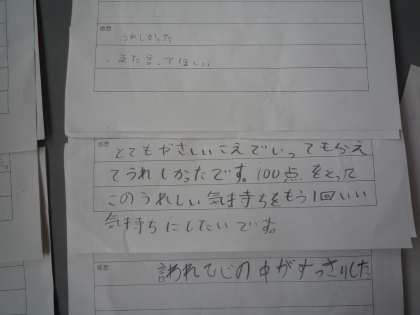 感想
うれしかった
・また言ってほしい
感想
とてもやさしいこえでいってもらえ
てうれしかったです。100点をとって
このうれしい気持ちをもう1回いい
気持ちにしたいです。
感想
言われて心の中がすっきりした